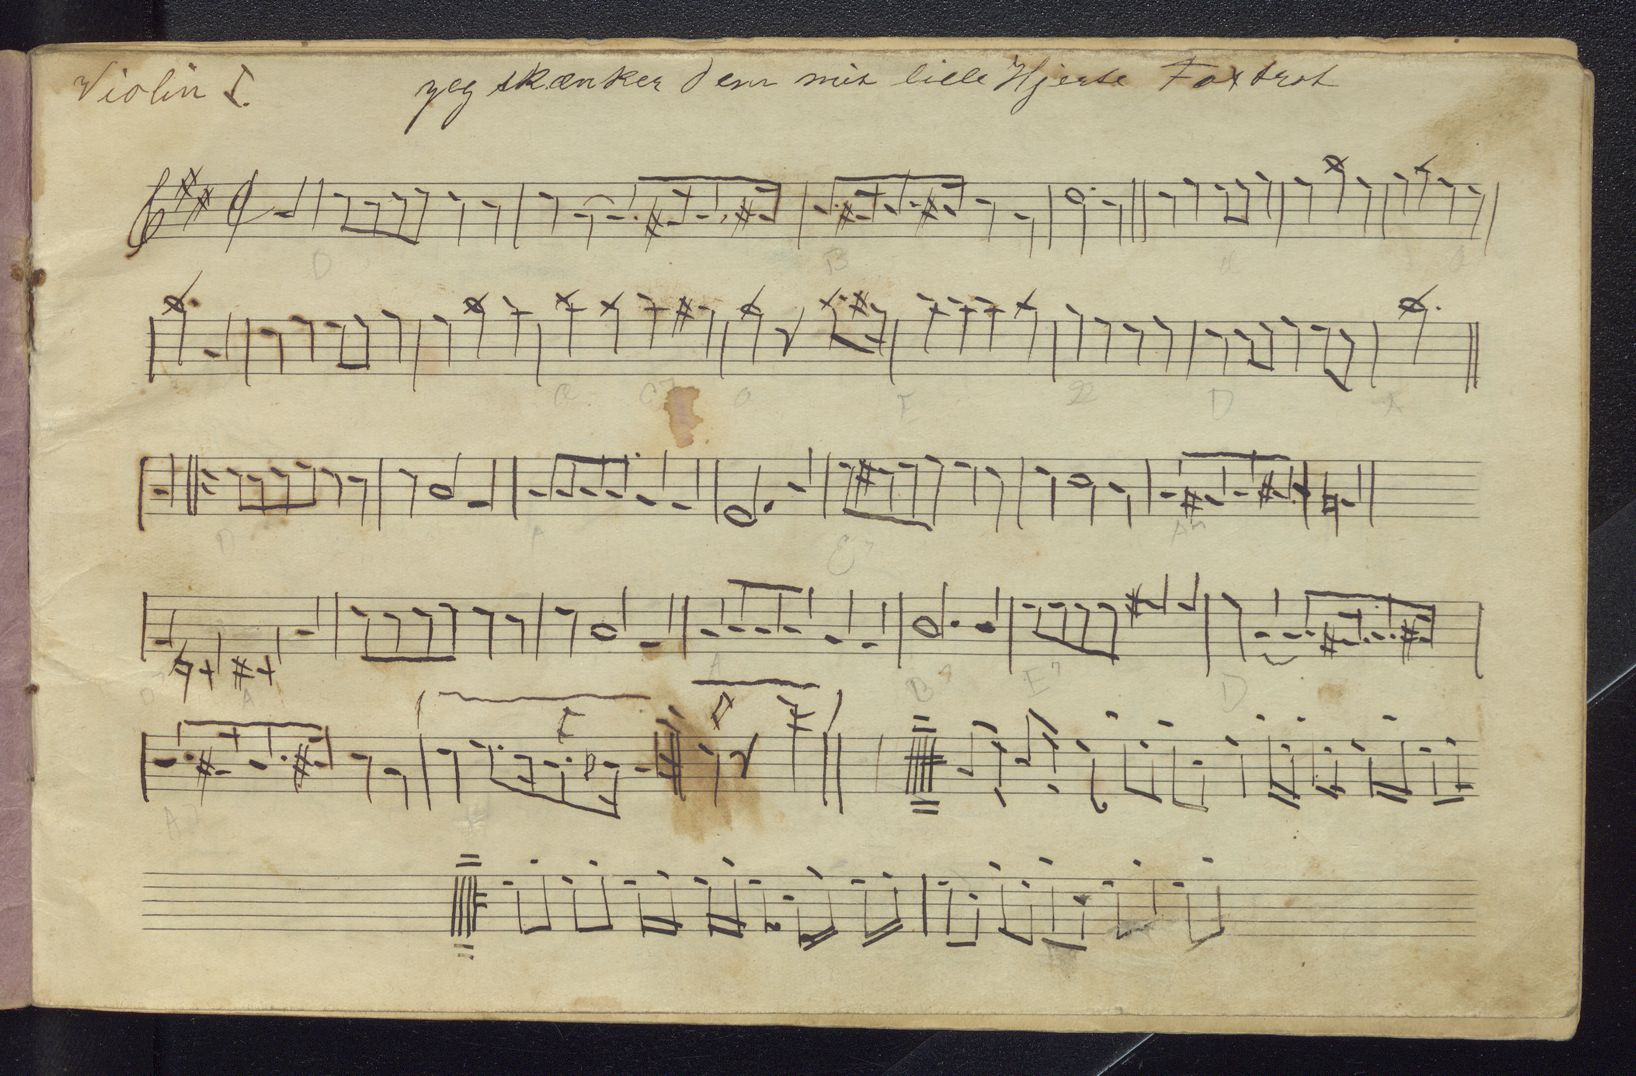 Violin I. yeg skænker dem mit lille Hjerte Foxtrot
D B
D
A
D A E7 A7
D7 A A B7 E7 D
A7